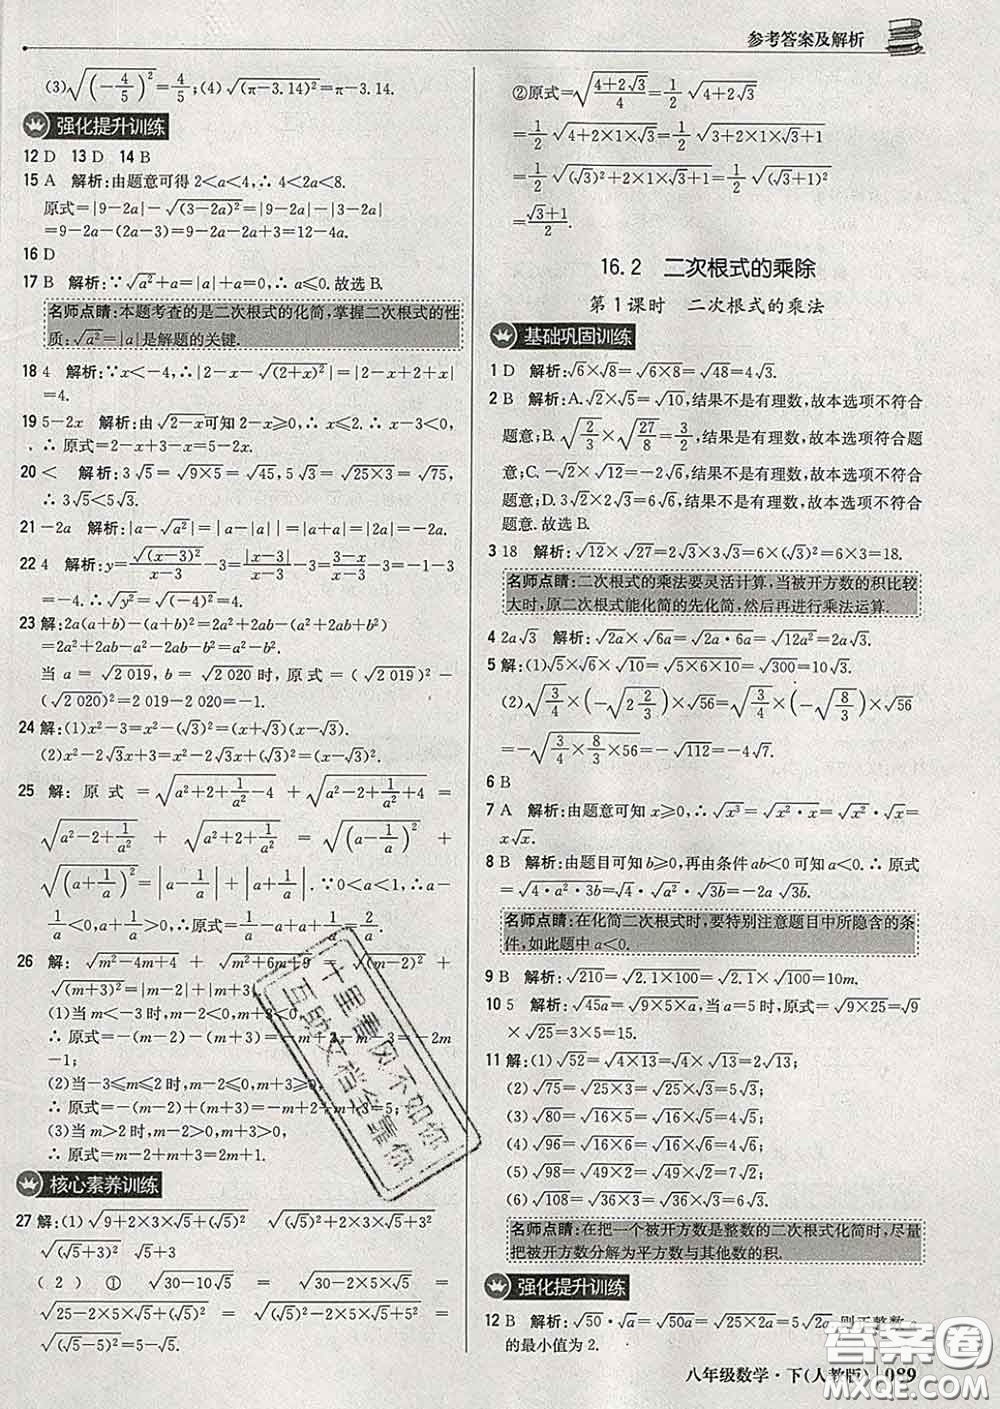 参考答案及解析
(3)√((-4/5)²)=4/5;(4)√((π-3.14)²)=π-3.14.
强化提升训练
12 D 13 D 14 B
15 A 解析:由题意可得 2<a<4,∴ 4<2a<8.
原式=|9-2a|-√((3-2a)²)=|9-2a|-|3-2a|
=9-2a-(2a-3)=9-2a-2a+3=12-4a.
16 D
17 B 解析:∵√(a²)+a=|a|+a=0,∴a≤0.故选 B.
名师点睛:本题考查的是二次根式的化简,掌握二次根式的性
质:√(a²)=|a|是解题的关键.
18 4 解析:∵x<-4,∴|2-x-√((2+x)²)|=|2-x+2+x|
=4.
19 5-2x 解析:由√(2-x)可知 2-x≥0,∴x≤2.∴x-3<0,
∴原式=2-x+3-x=5-2x.
20 < 解析:3√5=√(9×5)=√45,5√3=√(25×3)=√75,
∴3√5<5√3.
21 -2a 解析:|a-√(a²)|=|a-|a||=|a+a|=|2a|=-2a.
22 4 解析:y=√((x-3)²)/(x-3)-3=|x-3|/(x-3)-3=(3-x)/(x-3)-3=-1-3
=-4,∴√(y²)=√((-4)²)=4.
23 解:2a(a+b)-(a+b)²=2a²+2ab-(a²+2ab+b²)
=2a²+2ab-a²-2ab-b²=a²-b².
当 a=√2 019,b=√2 020时,原式=(√2 019)²-
(√2 020)²=2 019-2 020=-1.
24 解:(1)x²-3=x²-(√3)²=(x+√3)(x-√3).
(2)x²-2√3x+3=x²-2√3x+(√3)²=(x-√3)².
25 解:原式=√(a²+2+1/a²-4)+√(a²-2+1/a²+4)=
√(a²-2+1/a²)+√(a²+2+1/a²)=√((a-1/a)²)+
√((a+1/a)²)=|a-1/a|+|a+1/a|.∵0<a<1,∴a-
1/a<0,a+1/a>0,∴原式=-a+1/a+a+1/a=2/a.
26 解:√(m²-4m+4)+√(m²+6m+9)=√((m-2)²)+
√((m+3)²)=|m-2|+|m+3|.
(1)当 m<-3 时,m-2<0,m+3<0,
∴原式=-(m-2)-(m+3)=-m+2-m-3=-2m
-1;
(2)当-3≤m≤2 时,m-2≤0,m+3≥0,
∴原式=-(m-2)+(m+3)=-m+2+m+3=5;
(3)当 m>2 时,m-2>0,m+3>0,
∴原式=m-2+m+3=2m+1.
核心素养训练
27 解:(1)√(9+2×3×√5+(√5)²) √((√5)²+2×3×√5+3²)
√((√5+3)²) √5+3
(2)①√(30-10√5)=√(30-2×5×√5)=
√(25-2×5×√5+5)=√((√5)²-2×5×√5+5²)=
√((√5-5)²)=5-√5.
②原式=√((4+2√3)/4)=1/2√(4+2√3)
=1/2√(4+2×1×√3)=1/2√(3+2×1×√3+1)
=1/2√((√3)²+2×1×√3+1)=1/2√((√3+1)²)
=(√3+1)/2.
16.2 二次根式的乘除
第 1 课时 二次根式的乘法
基础巩固训练
1 D 解析:√6×√8=√(6×8)=√48=4√3.
2 B 解析:A.√2×√5=√10,结果不是有理数,故本选项不符合
题意;B.√(2/3)×√(27/8)=3/2,结果是有理数,故本选项符合题
意;C.-√2×√12=-2√6,结果不是有理数,故本选项不符合
题意;D.3√2×2√3=6√6,结果不是有理数,故本选项不符合
题意.故选 B.
3 18 解析:√12×√27=2√3×3√3=6×(√3)²=6×3=18.
名师点睛:二次根式的乘法要灵活计算,当被开方数的积比较
大时,原二次根式能化简的先化简,然后再进行乘法运算.
4 2a√3 解析:√2a×√6a=√(2a·6a)=√(12a²)=2a√3.
5 解:(1)√5×√6×√10=√(5×6×10)=√300=10√3.
(2)√(3/4)×(-√(2 2/3))×√56=√(3/4)×(-√(8/3))×√56
=-√(3/4×8/3×56)=-4√7.
6 B
7 A 解析:由题意可知 x≥0,∴√(x³)=√(x²·x)=√(x²)·√x=
x√x.
8 B 解析:由题目可知 b≥0,再由条件 ab<0 可知 a<0.∴原式
=√(4·a²·3b)=√4·√(a²)·√3b=-2a√3b.
名师点睛:在化简二次根式时,要特别注意题目中所隐含的条
件,如此题中 a<0.
9 B 解析:√210=√(2.1×100)=√2.1×√100=10m.
10 5 解析:√45a=√(9×5×a),当 a=5 时,原式=√(9×25)=√9
×√25=3×5=15.
11 解:(1)√52=√(4×13)=√4×√13=2√13;
(2)√75=√(25×3)=√25×√3=5√3;
(3)√80=√(16×5)=√16×√5=4√5;
(4)√96=√(16×6)=√16×√6=4√6;
(5)√98=√(49×2)=√49×√2=7√2;
(6)√108=√(36×3)=√36×√3=6√3.
名师点睛:在把一个被开方数是整数的二次根式化简时,尽量
把被开方数分解为平方数与其他数的积.
强化提升训练
12 B 解析:√50·√a=√50a=√(25×2a)=5√2a,则正整数
的最小值为 2.
八年级数学·下(人教版) 089
十里春风不如你
互助文档全靠你
答案圈
MXQE.COM